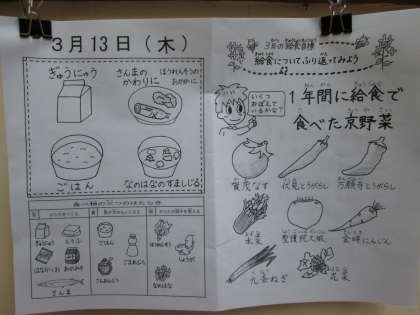 ３月１３日（木）
ぎゅうにゅう
さんまの
かわりに
ほうれんそうの
おかかに
ごはん
なのはなのすましじる
食べ物の三つのはたらき
ぎゅうにゅう
とうふ
ごはん
ごまあぶら
ほうれんそう
しょうが
なのはな
さんま
３月の給食目標
給食についてふり返ってみよう
いくつ
おぼえて
いるかな？
１年間に給食で
食べた京野菜
賀茂なす
伏見とうがらし
万願寺とうがらし
水菜
聖護院大根
金時にんじん
九条ねぎ
花菜